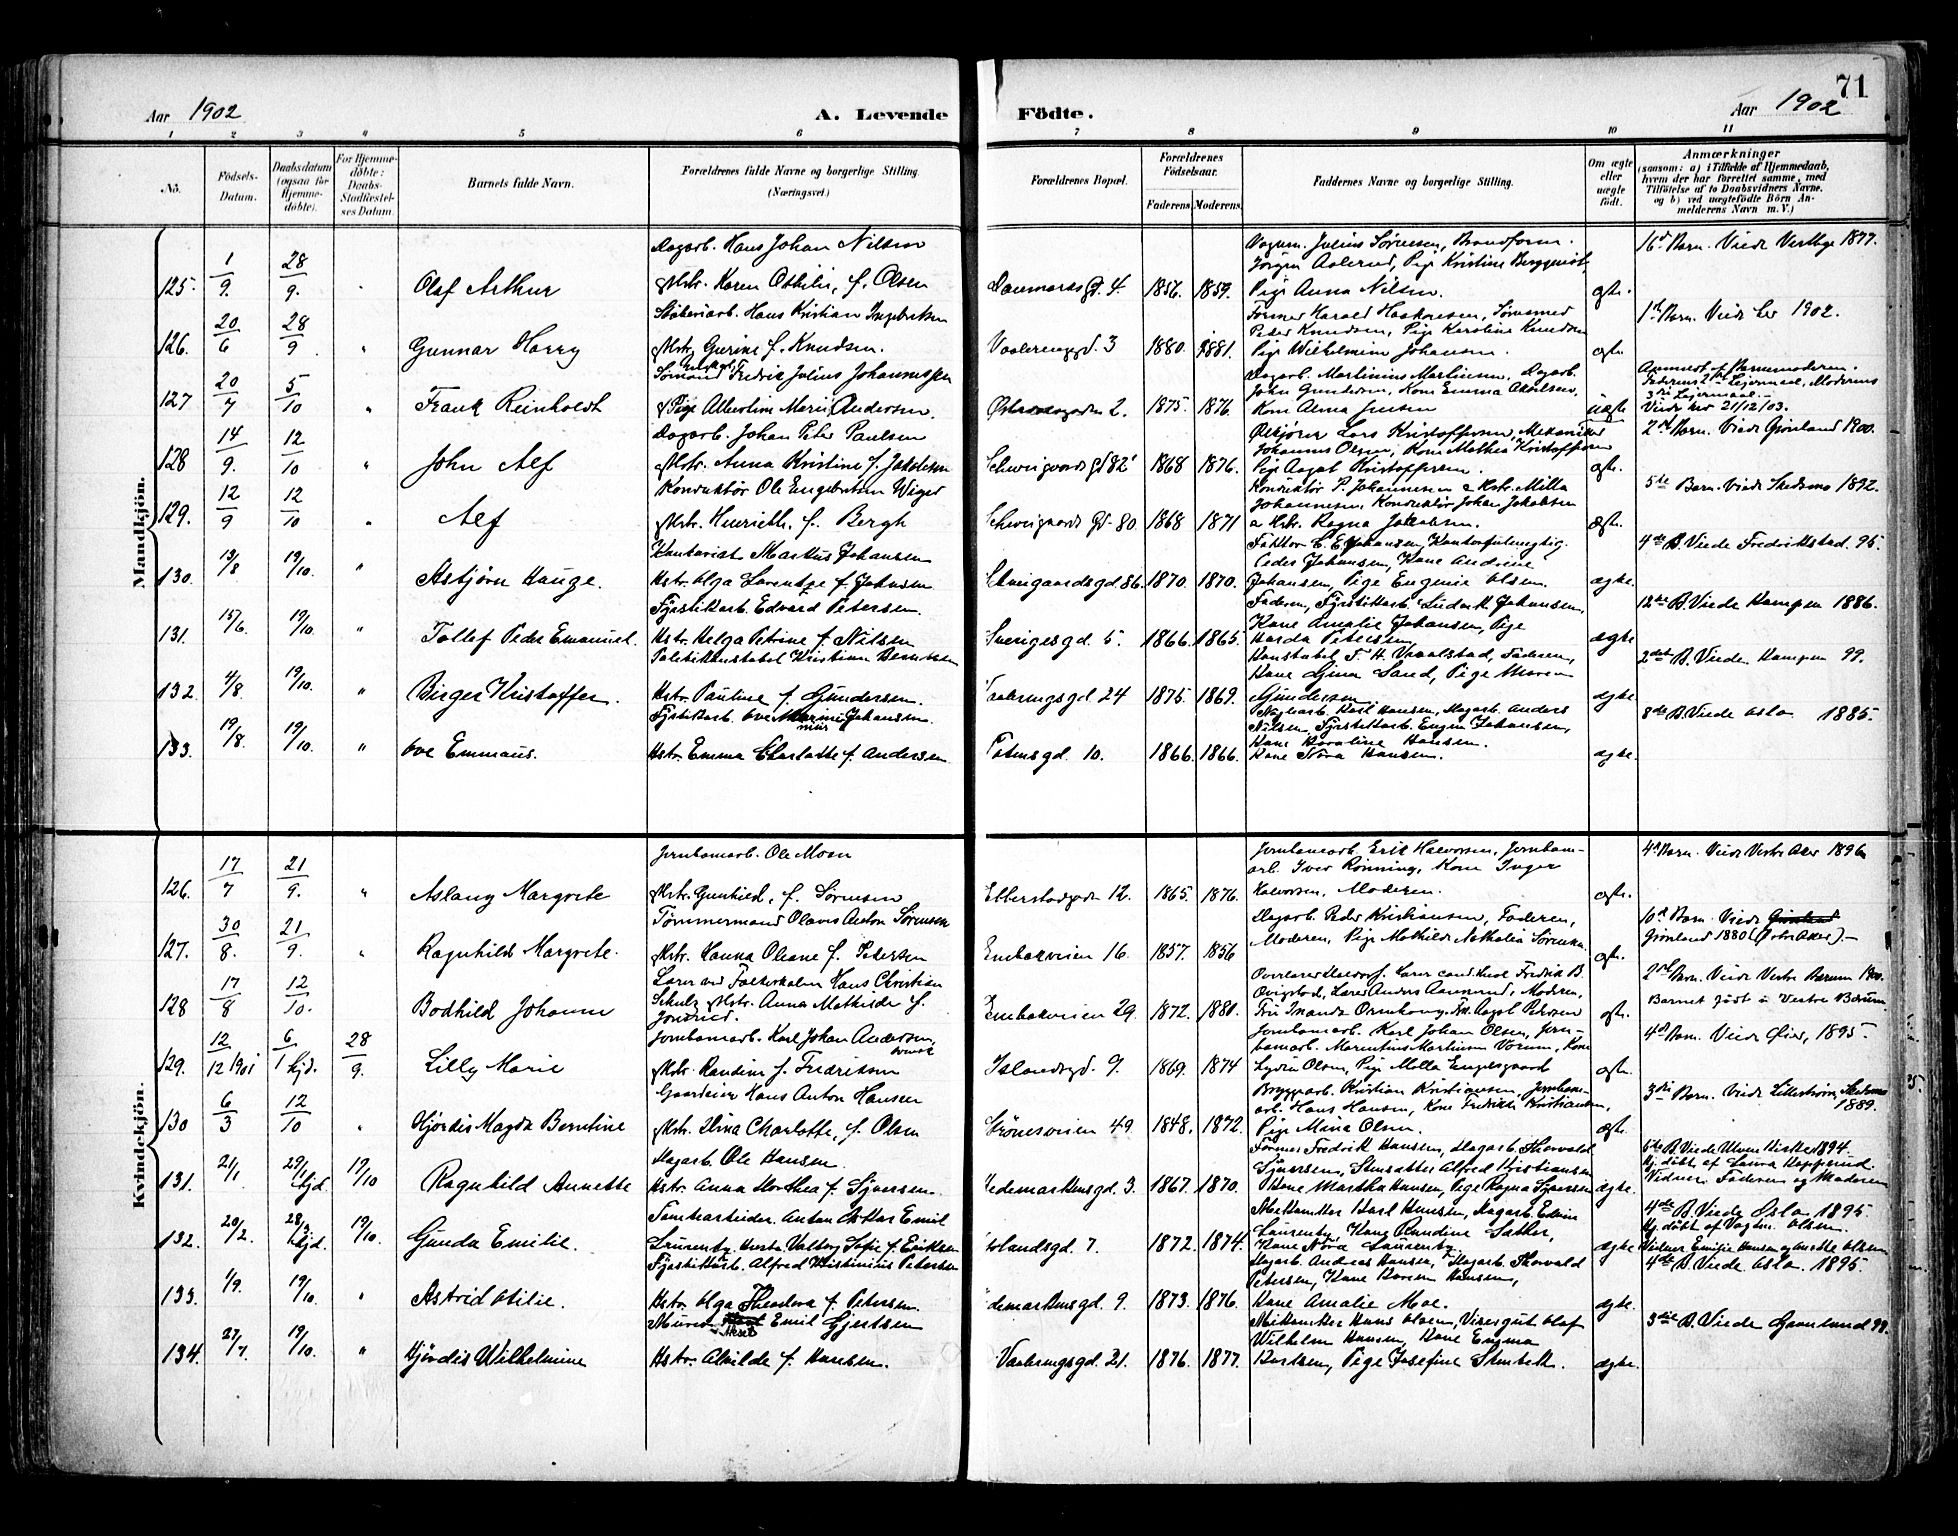 71
Aar 1902
A. Levende
Födte.
Aar 1902
1 2 3 4 5 6 7 8 9 10 11
No.
Födsels-
Datum.
Daabsdatum
(ogsaa for
Hjemme-
döbte).
For Hjemme-
döbte:
Daabs-
Stadfæstel-
ses Datum.
Barnets fulde Navn.
Forældrenes fulde Navne og borgerlige Stilling.
(Næringsvei)
Forældrenes Bopæl.
Forældrenes
Födselsaar.
Faderens Moderens
Faddernes Navne og borgerlige Stilling.
Om ægte
eller
uægte
födt.
Anmærkninger
(saasom: a) i Tilfælde af Hjemmedaab,
hvem der har forrettet samme, med
Tilföielse af to Daabsvidners Navne,
og b) ved uægtefödte Börn An-
melderens Navn m. V.)
Mandkjön.
125. 1/9. 28/9. " Olaf Arthur
Dagarb. Hans Johan Nilsen
Hstr. Karen Othilie, f. Olsen
Danmarks gd. 4. 1856. 1859.
Julius Sørensen,
Pige Kristine Bergqvist,
Pige Anna Nilsen.
ægte.
16d Barn. Viede 1877.
126. 20/6 28/9. " Gunnar Harry
Støberiarb. Hans Kristian Ingebretsen
Hstr. Gurine f. Knudsen.
Vaalerenggd. 3 1880. 1881.
Former Harald
Peder Knudsen, Pige Karoline Knudsen
Pige Wilhelmine Johansen.
ægte.
1ste Barn. Viede 1902.
127 20/7 5/10 " Frank Reinholdt
Sømand Fredrik Julius Johannessen
Pige Albertine Marie Andersen.
2. 1875. 1876.
Dagarb. Martinius Martinsen, Dagarb.
John Gundersen, Kone Emma
Kone Anna Jensen
uægte
Anmeldt af Barnemoderen.
Faderens 2det Leiermaal, Moderens
3die Leiermaal.
Viede 21/12/03.
128 14/9. 12/10 " John Alf
Dagarb. Johan Peter Paulsen
Hstr. Anna Kristine f. Jakobsen
Schweigaards gd 82 1868 1876.
Ølkjører Lars Kristoffersen, Mekaniker
Johannes Olsen, Kone Mathea Kristoffersen
Pige Aagot Kristoffersen.
ægte.
2det Barn. Viede Grønland 1900.
129. 12/9 12/10 " Alf
Konduktør Ole Engebretsen Wiger
Hstr. Henriette, f. Bergh
Schweigaards Gd. 80. 1868 1871
Konduktør P. Johannesen & Hstr. Milla
Johannesen, Konduktør Johan Jakobsen
& Hstr. Ragna Jakobsen.
Ægte.
5te Barn. Viede Skedsmo 1892.
130. 13/8 19/10. " Asbjørn Hauge.
Kontorist Markus Johansen
Hstr. Olga Lorentze f Johnsen
Schweigaardsgd. 86. 1870. 1870.
Faktor C. E. Johansen, Kontorfuldmægtig
Peder Johansen, Kone Andrine
Johansen, Pige Eugenie Olsen.
ægte.
4de B. Viede Fredrikstad. 95.
131. 15/6. 19/10. " Tollef Peder Emanuel.
Fyrstikarb. Edvard Petersen.
Hstr. Helga Petrine f. Nilsen
Sverigesgd. 5. 1866. 1865.
Faderen, Fyrstikarb. Ludvik Johansen,
Kone Amalie Johansen, Pige
Harda Petersen,
ægte
12te B. Viede Kampen 1886.
132. 4/8. 19/10. " Birger Kristoffer.
Politikonstabel Kristian
Hstr. Pauline f. Gundersen.
Vaaleringsgd. 24 1875. 1869.
Konstabel T. H. Vraalstad, Faderen,
Kone Gina Sand, Pige Maren
Gundersen
ægte
2det B. Viede. Kampen 99.
133. 19/8. 19/10. " Ove Emmaus.
Fyrstikarb. Ove Johansen.
Hstr. Emma Charlotte f. Andersen
10. 1866. 1866.
Karl Hansen, Dagarb. Anders
Nilsen, Fyrstikarb. Eugen Johansen,
Kone Karoline Hansen.
Kone Nora Hansen.
ægte.
8de B. Viede Oslo 1885.
Kvindekjön.
126. 17/7 21/9. " Aslaug Margrete
Jernbanearb. Ole Moen
Hstr. Gunhild, f. Sørensen
Ebberstadgdn 12. 1865. 1876.
Jernbanearb. Erik Halvorsen, Jernbane-
arb. Iver Rønning, Kone Inger
Halvorsen, Moderen.
ægte.
4d Barn. Viede Vestre Aker 1896
127. 30/8. 21/9. " Ragnhild Margrete.
Tømmermand Olavis Anton Sørensen
Hstr. Hanna Oleane f. Petersen
Enebakveien 16. 1857. 1856
Dagarb. Peder Kristiansen, Faderen,
Moderen, Pige Mathilde Nathalia Sørensen.
ægte.
10d Barn. Viede Grønland
Grønland 1880 (Østre Aker).-
128 17/8 12/10. " Bodhild Johanne
Lærer ved Folkeskolen Hans Christian
Schulz Hstr. Anna Mathilde f.
Enebakveien 29. 1872. 1880.
Lærer cand. theol. Fredrik B.
Lærer Anders Aanerud, Moderen,
ægte.
2det Barn. Viede Vestre Bærum 1900.
Barnet født i Vestre Bærum
129. 12/12 1901 6/1 hjd. 28/9. Lilly Marie
Jernbanearb. Karl Johan Andersen
Hstr. Randine f. Fredriksen
Islandsgd. 9. 1869. 1874
Jernbanearb. Karl Johan Olsen, Jern-
banearb. Marentius Martinsen Vorum, Kone
Lydia Olsen, Pige Milla Engelsgaard
ægte.
4d Barn. Viede 1895.
130 6/3 12/10 " Hjørdis Magda Berntine
Gaardeier Hans Anton Hansen
Hstr. Dina Charlotte, f. Olsen
Strømsveien 49. 1848. 1872.
Bryggearb. Kristian Kristiansen, Jernbane-
arb. Hans Hansen, Kone Fredrikke Kristiansen,
Pige Mina Olsen.
ægte.
3die Barn. Viede Lillestrøm Skedsmo
1889.
131. 21/1. 29/1 hjd. 19/10 Ragnhild Annette
Dagarb. Ole Hansen.
Hstr. Anna Dorthea f. Sjuersen.
Hedemarkensgd. 3. 1867. 1870.
Former Fredrik Hansen, Dagarb. Thorvald
Sjuersen, Stensætter Alfred Kristiansen
Kone Martha Hansen, Pige Ragna Sjuersen
ægte.
6te B. Viede Uranienkirke 1894.
Hj. døbt af Laura Kopperud.
Vidner: Faderen og Moderen
132. 20/2. 28/3 hjd. 19/10. Gunda Emilie.
Tomtearbeider. Anton Oskar Emil
Laurenby. Hustr. Valborg Sofie f. Eriksen
Islandsgd. 7. 1872. 1874.
Mekaniker Karl Hansen, Dagarb. Edvin
Laurenby, Kone Randine Sæther,
Kone Nora Laurenby.
ægte
4de B. Viede Oslo 1895.
Hj. døbt af Olsen.
Vidner Emilie Hansen og Anette Olsen
133. 1/9. 19/10. " Astrid Otilie.
Fyrstikarb. Alfred Kristinius Petersen
Hstr. Olga Theodora f. Petersen.
Hedemarkensgd. 9. 1873. 1876.
Dagarb. Andreas Hansen, Dagarb. Thorvald
Petersen, Kone Karen Hansen,
Kone Amalie Moe.
ægte.
4de B. Viede Oslo. 1895.
134. 27/7. 19/10. " Hjørdis Wilhelmine
Murer Aksel Emil Gjertsen
Hstr. Alvilde f. Karlsen.
Vaaleringsgd. 21. 1876. 1877.
Mekaniker Hans Olsen, Visergut Olaf
Wilhelm Hansen, Kone Emma
Karlsen, Pige Josefine Stenbek.
ægte.
3die B. Viede Grønland 99.